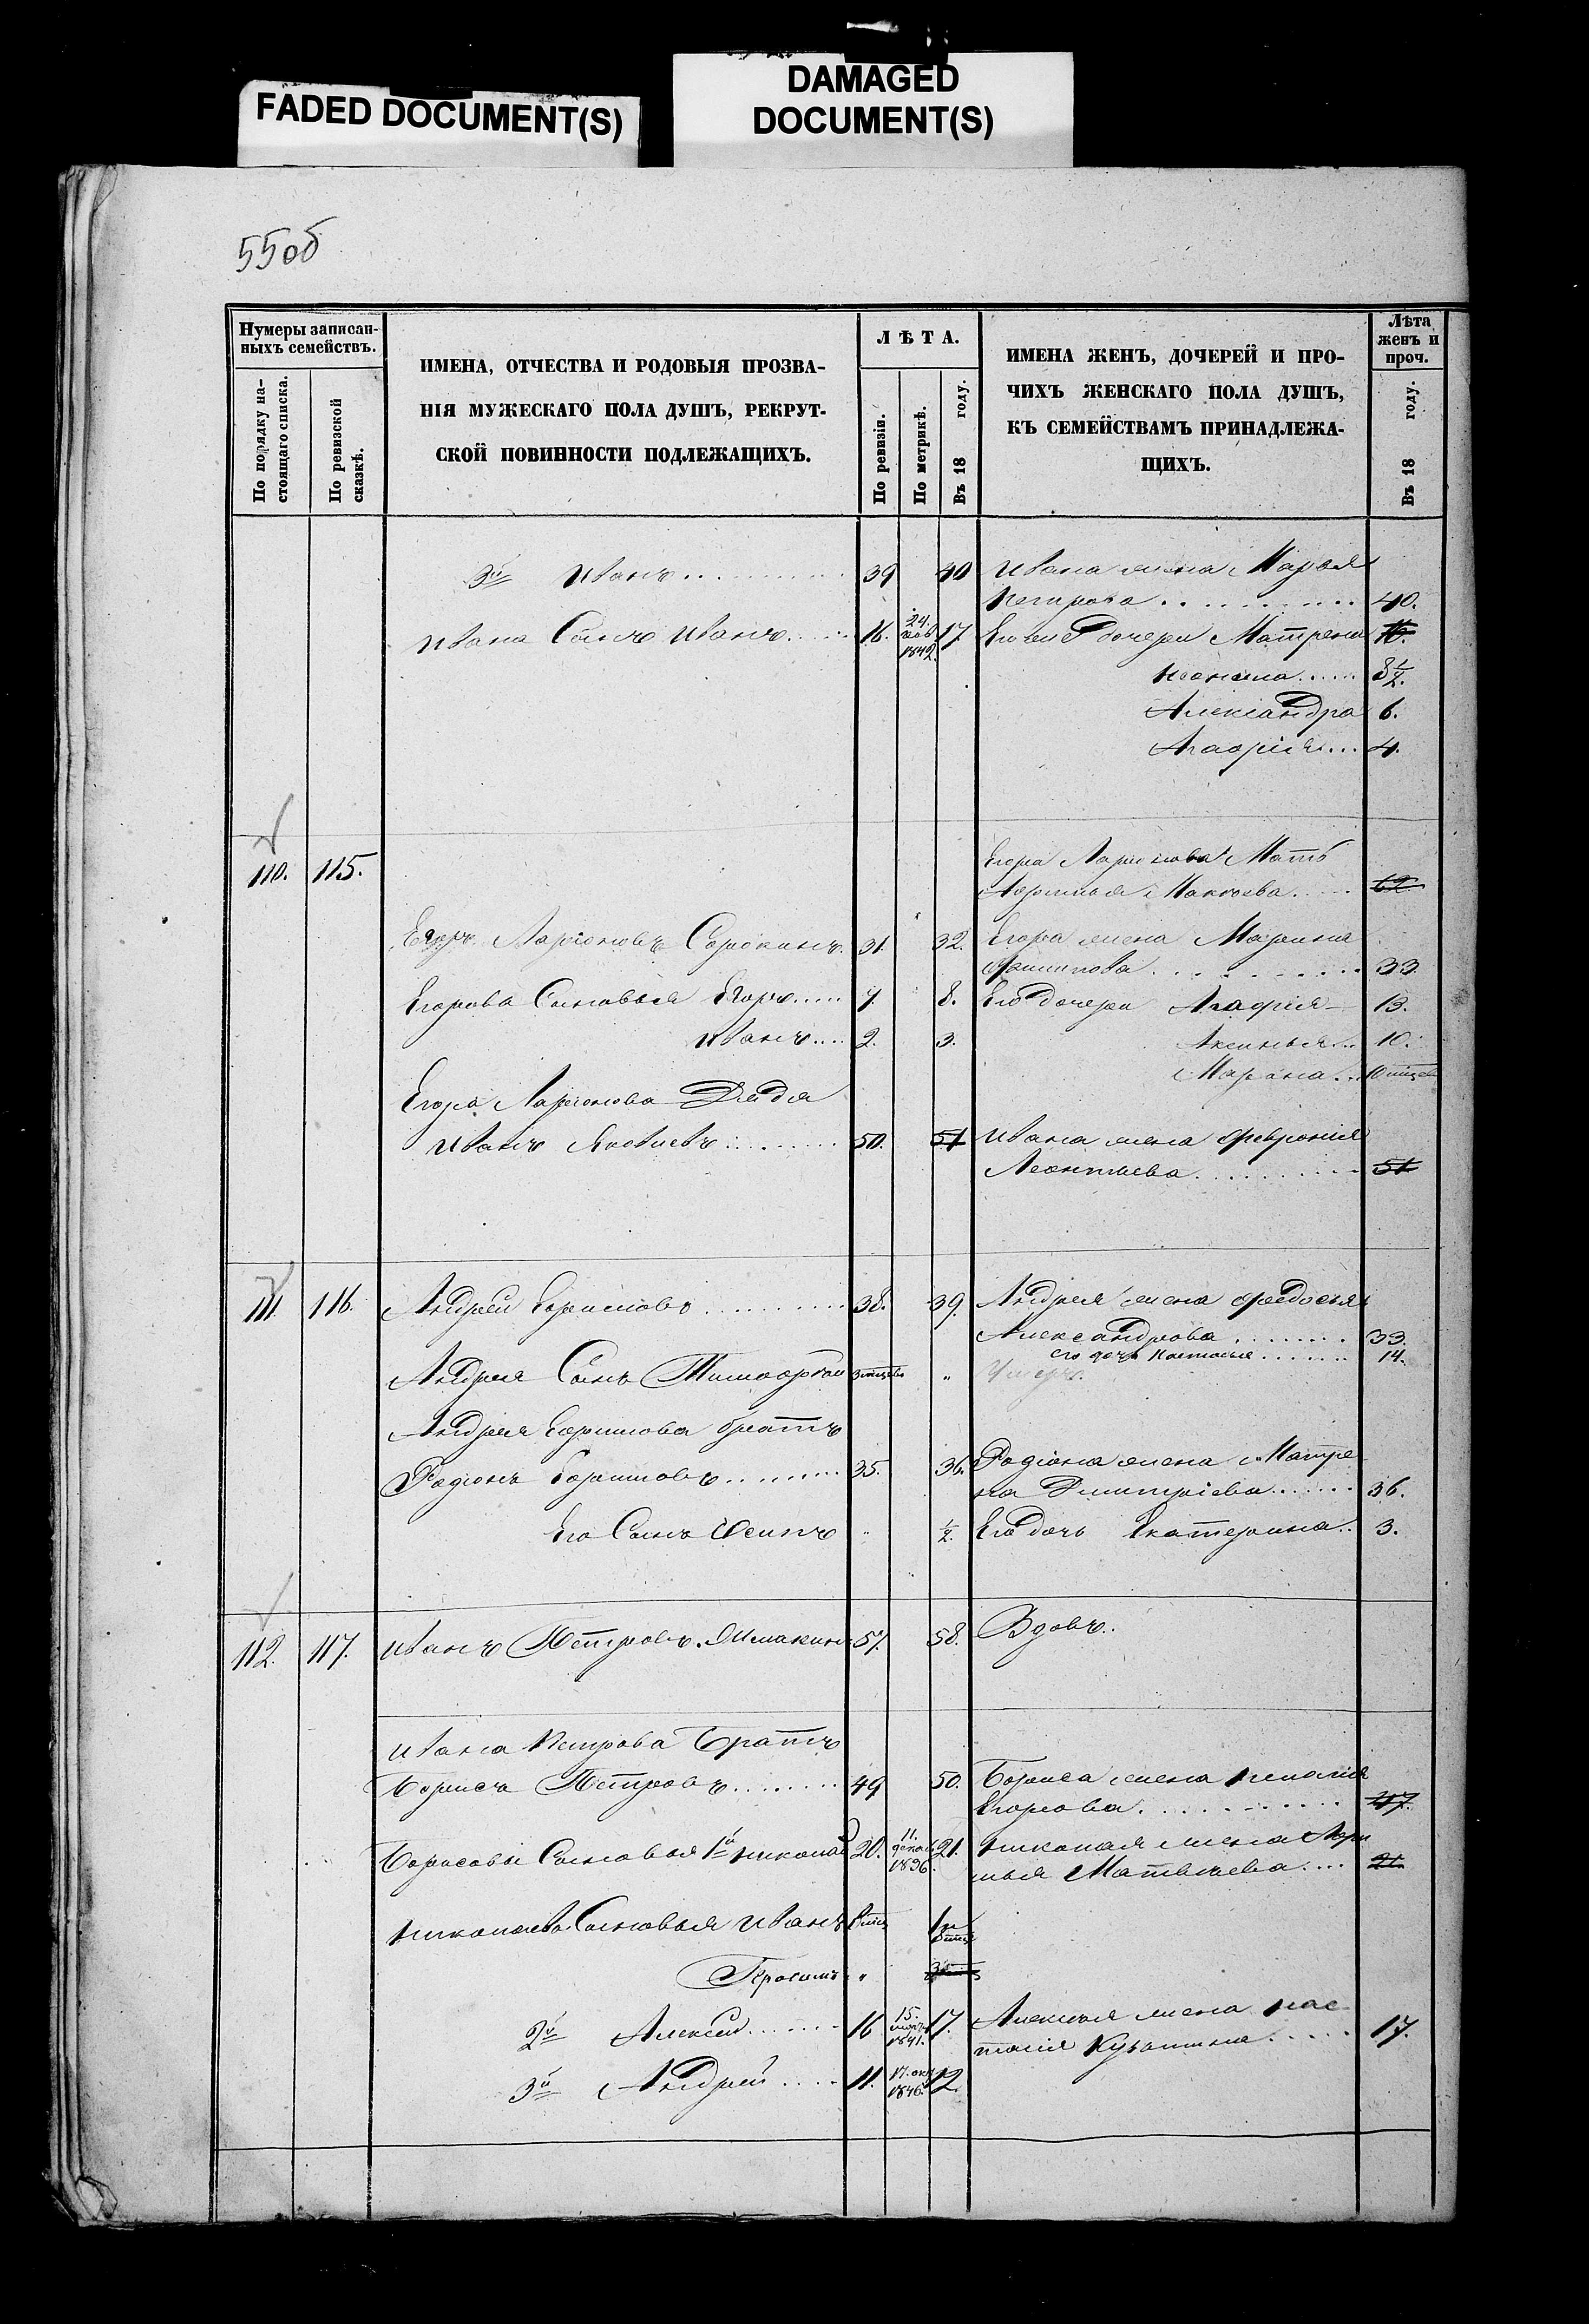 FADED DOCUMENT(S)
DAMAGED
DOCUMENT(S)
55об
Нумеры записан-
ныхъ семействъ.
По порядку на-
стоящаго списка.
По ревизской
сказкѣ.
ИМЕНА, ОТЧЕСТВА И РОДОВЫЯ ПРОЗВА-
НІЯ МУЖЕСКАГО ПОЛА ДУШЪ, РЕКРУТ-
СКОЙ ПОВИННОСТИ ПОДЛЕЖАЩИХЪ.
ЛѢТА.
По ревизіи.
По метрикѣ.
Въ 18 году.
ИМЕНА ЖЕНЪ, ДОЧЕРЕЙ И ПРО-
ЧИХЪ ЖЕНСКАГО ПОЛА ДУШЪ,
КЪ СЕМЕЙСТВАМЪ ПРИНАДЛЕЖА-
ЩИХЪ.
Лѣта
женъ и
проч.
Въ 18 году.
3й Иванъ 39 40 Ивана жена Марья
Петрова 40.
Ивана Сынъ Иванъ 16. 24. 1842. 17 дочери Матрена 16.
8 1/2.
Александра 6.
Агафія 4.
110. 115. Егора Ларіонова Мать
62
Егоръ Ларіоновъ Сорокинъ. 31. 32. Егора жена Марина
33
Егорова Сыновья Егоръ 7. 8. Его дочери Агафія 13.
Иванъ 2. 3. Аксинья 10.
10 мѣсе
Егора Ларіонова Дядя
Иванъ Яковлевъ 50. 51 Ивана жена Февронія
Леонтьева 51
111. 116. Андрей 38. 39. Андрея жена Федосья
Александрова 33.
его дочь Настасья 14.
Андрея Сынъ Тимофей „ Умеръ.
Андрея братъ
Родіонъ 35. 36. Родіона жена Матре
на Дмитріева 36.
Его Сынъ Осипъ 1/2. Его дочь Екатерина 3.
112. 117. Иванъ Петровъ 57. 58. Вдовъ.
Ивана Петрова Братъ
Борисъ Петровъ 49 50. Бориса жена
Егорова 47.
Борисовы Сыновья 1й Николай 20. 11. декаб. 1836. 21. Николая жена Дарья
Матвѣева 21.
Николаева Сыновья Иванъ
Герасимъ „
2й Алексей 16 15. 1841. 17. Алексея жена Нас-
тасія 17.
3й Андрей 11. 17. окт 1846. 12.